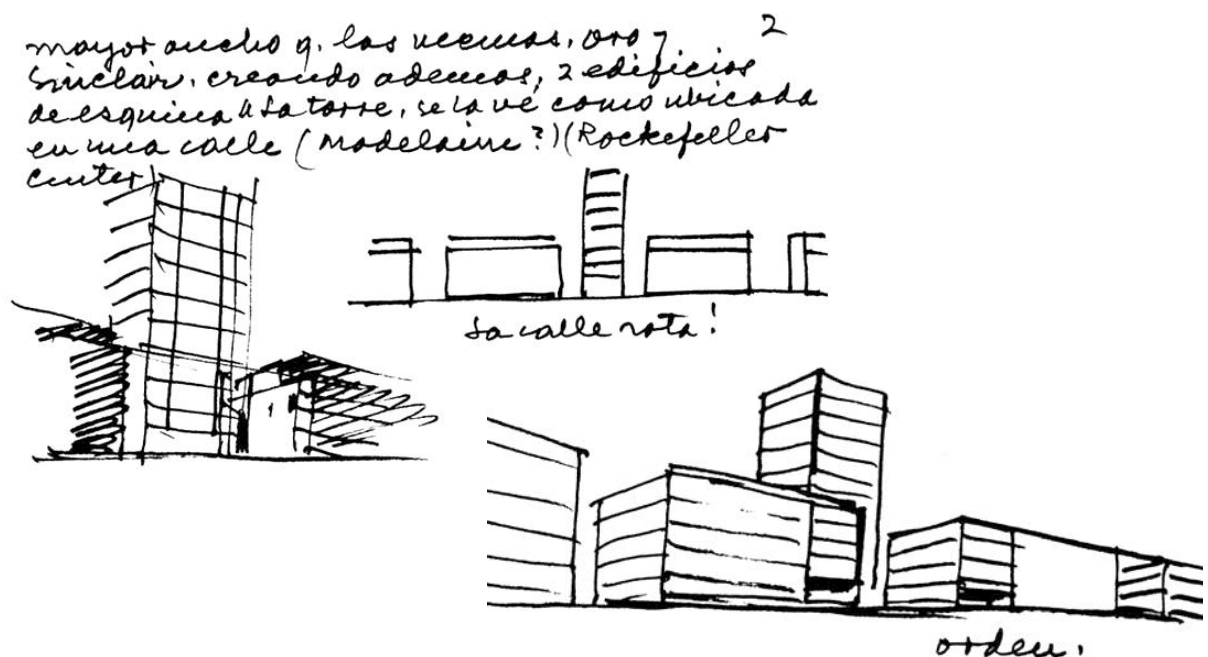 mayor ancho q. las vecinas, oro y 2
Sinclair. creando ademas, 2 edificios
de esquina u La torre, se la vé como ubicada
en una calle (Madelaine?) (Rockefeller
Center)
La calle rota!
orden.